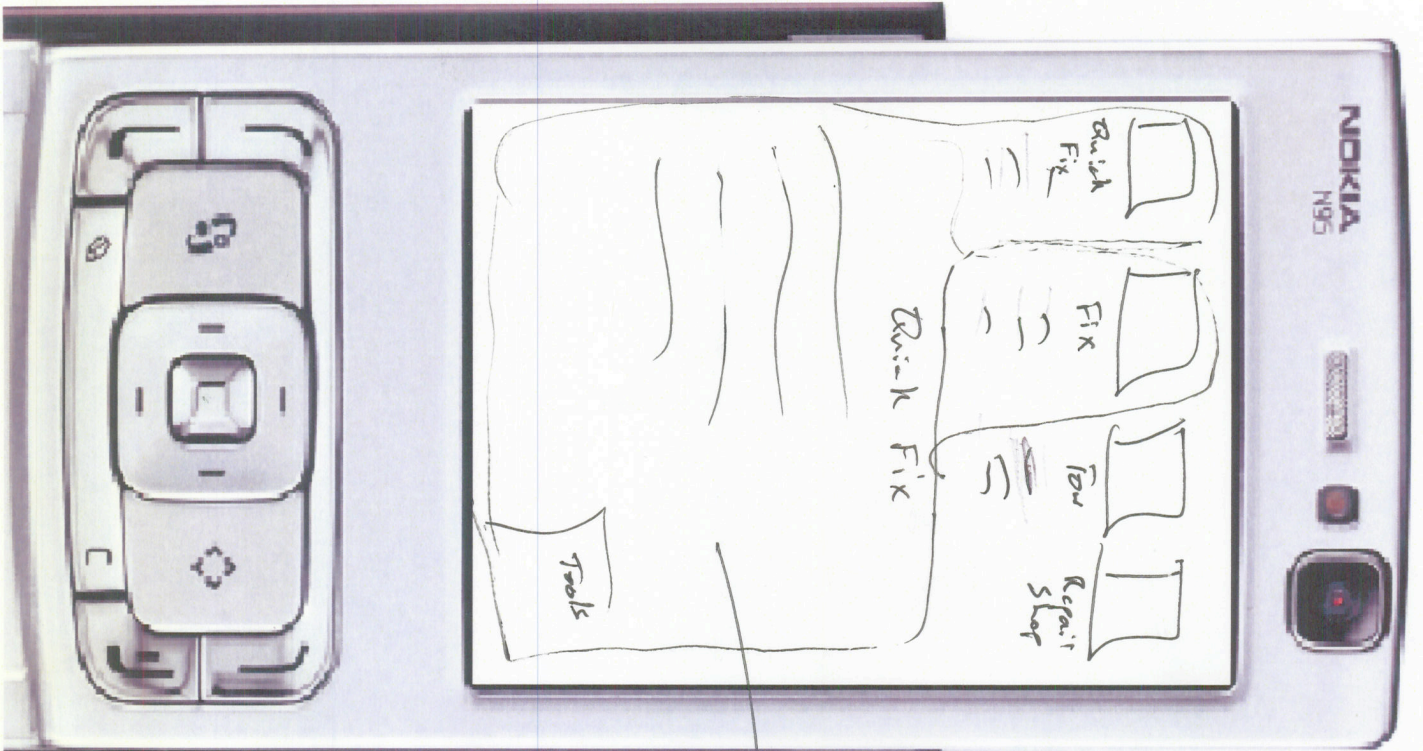 NOKIA
N95
Quick
Fix
Fix
Tow
Repair
Shop
Quick Fix
Tools